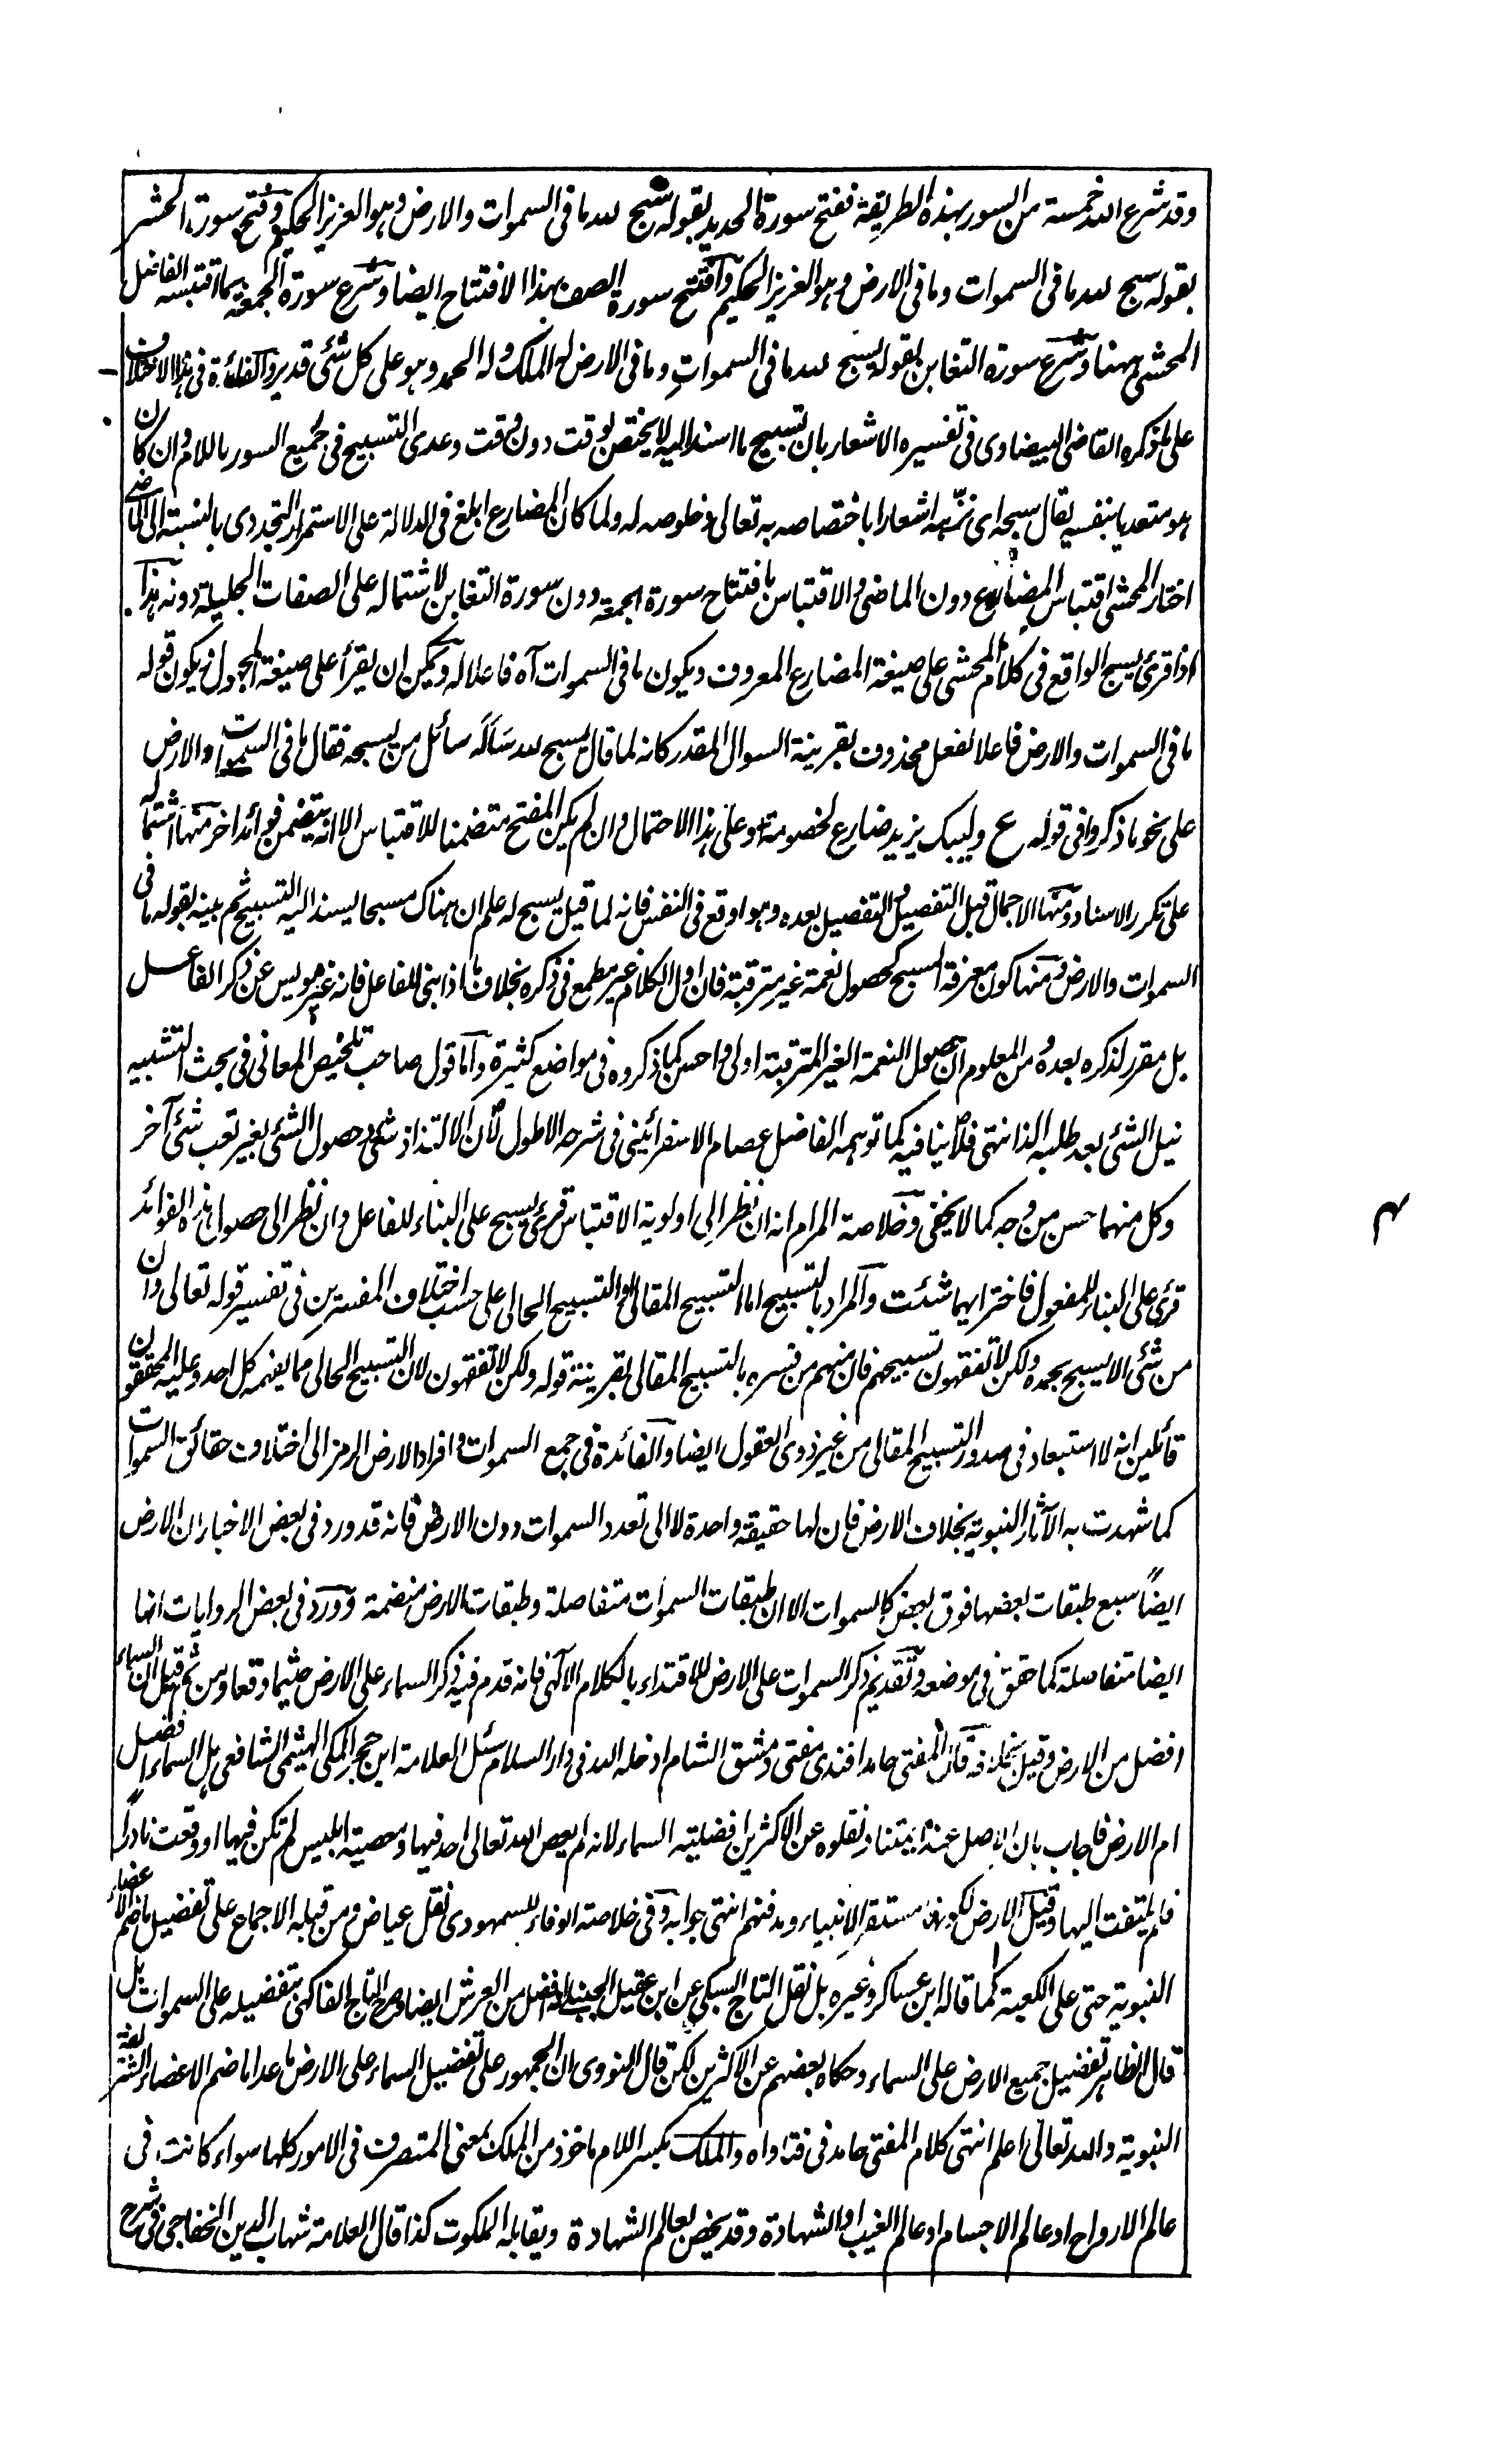 وقد شرع الله خمسة من السور بهذه الطريقة ففتح سورة الحديد بقوله سبح لله ما في السموات والارض وهو العزيز الحكيم وفتح سورة الحشر
بقوله سبح لله ما في السموات وما في الارض وهو العزيز الحكيم وافتتح سورة الصف بهذا الافتتاح ايضا وشرع سورة الجمعة بما اقتبسه الفاضل
المحشي ههنا وشرع سورة التغابن بقوله يسبح لله ما في السموات وما في الارض له الملك وله الحمد وهو على كل شئ قدير والفائدة في هذا الاختلاف
على ما ذكره القاضي البيضاوي في تفسيره الاشعار بان تسبيح ما اسند اليه لا يختص بوقت دون وقت وعدي التسبيح في جميع السور باللام وان كان
هو متعديا بنفسه يقال سبحه اي نزّهه اشعارا باختصاصه به تعالى وخلوصه له ولما كان المضارع ابلغ في الدلالة على الاستمرار التجددي بالنسبة الى الماضي
اختار المحشي اقتباس المضارع دون الماضي والاقتباس بافتتاح سورة الجمعة دون سورة التغابن لاشتماله على الصفات الجليلة دونه هذا
اذا قرئ يسبح الواقع في كلام المحشي على صيغة المضارع المعروف ويكون ما في السموات آه فاعلا له ويمكن ان يقرأ على صيغة المجهول فيكون قوله
ما في السموات والارض فاعلا لفعل محذوف بقرينة السوال المقدر كانه لما قال يسبح لله سَأَلَه سائل من يسبحه فقال ما في السموات والارض
على نحو ما ذكروا في قوله ع وليبك يزيد ضارع لخصومة وعلى هذا الاحتمال وان لم يكن المفتتح متضمنا للاقتباس الا انه يتضمن فوائد اخر منها اشتماله
على تكرر الاسناد ومنها الاجمال قبل التفصيل والتفصيل بعده وهو اوقع في النفس فانه لما قيل يسبح له علم ان هناك مسبحا يسند اليه التسبيح ثم بينه بقوله ما في
السموات والارض ومنها كون معرفة المسبح كحصول نعمة غير مترقبة فان اول الكلام غير مطمع في ذكره بخلاف ما اذا بني للفاعل فانه غير مويس عن ذكر الفاعل
بل مقرر لذكره بعده ومن المعلوم ان حصول النعمة الغير المترقبة اولى واحسن كما ذكروه في مواضع كثيرة واما قول صاحب تلخيص المعاني في بحث التشبيه
نيل الشئ بعد طلبه الذ انتهى فلا ينافيه كما توهمه الفاضل عصام الاسفرائيني في شرحه الاطول لان الالتذاذ شئ وحصول الشئ بغير تعب شئ آخر
وكل منهما حسن من وجه كما لا يخفى وخلاصة المرام انه ان نظر الى اولوية الاقتباس قرئ يسبح على البناء للفاعل وان نظر الى حصول هذه الفوائد
قرئ على البناء للمفعول فاختر ايهما شئت والمراد بالتسبيح اما التسبيح المقالي او التسبيح الحالي على حسب اختلاف المفسرين في تفسير قوله تعالى وان
من شئ الا يسبح بحمده ولكن لا تفقهون تسبيحهم فان منهم من فسره بالتسبيح المقالي بقرينة قوله ولكن لا تفقهون لان التسبيح الحالي مما يفهمه كل احد وعليه المحققون
قائلين انه لا استبعاد في صدور التسبيح المقالي من غير ذوي العقول ايضا والفائدة في جمع السموات وافراد الارض الرمز الى اختلاف حقائق السموات
كما شهدت به الآثار النبوية بخلاف الارض فان لها حقيقة واحدة لا الى تعدد السموات دون الارض فانه قد ورد في بعض الاخبار ان الارض
ايضاً سبع طبقات بعضها فوق بعض كالسموات الا ان طبقات السموات متفاصلة وطبقات الارض منضمة وورد في بعض الروايات انها
ايضا متفاصلة كما حقق في موضعه وتقديم ذكر السموات على الارض للاقتداء بالكلام الالهي فانه قدم فيه ذكر السماء على الارض حيثما وقعا ومن ثم قيل ان السماء
افضل من الارض وقيل بخلافه قال المفتي حامد افندي مفتي دمشق الشام ادخله الله في دار السلام سئل العلامة ابن حجر المكي الهيثمي الشافعي هل السماء افضل
ام الارض فاجاب بان الاصل عند ائمتنا ونقلوه عن الاكثرين افضلية السماء لانه لم يعص الله تعالى احد فيها ومعصية ابليس لم تكن فيها او وقعت نادراً
فلم يلتفت اليها وقيل الارض لكونها مستقر الانبياء ومدفنهم انتهى جوابه وفي خلاصة الوفاء للسمهودي نقل عياض ومن قبله الاجماع على تفضيل ما ضم الاعضاء
النبوية حتى على الكعبة كما قاله ابن عساكر وغيره بل نقل التاج السبكي عن ابن عقيل الحنبلي انه افضل من العرش ايضا وصرح التاج الفاكهي بتفضيله على السموات بل
قال الظاهر تفضيل جميع الارض على السماء وحكاه بعضهم عن الاكثرين لكن قال النووي ان الجمهور على تفضيل السماء على الارض ما عدا ما ضم الاعضاء الشريفة
النبوية والله تعالى اعلم انتهى كلام المفتي حامد في فتاواه والملك بكسر اللام ماخوذ من الملك بمعنى المتصرف في الامور كلها سواء كانت في
عالم الارواح او عالم الاجسام او عالم الغيب او الشهادة وقد يخص بعالم الشهادة ويقابله الملكوت كذا قال العلامة شهاب الدين الخفاجي في شرح